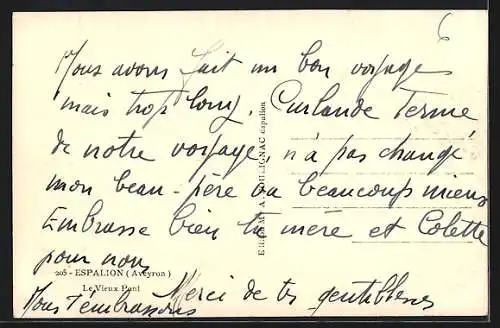 Nous avons fait un bon voyage
mais trop long. Curlande Terme
de notre voyage, n'a pas changé
mon beau-père va beaucoup mieux
Embrasse bien ta mère et Colette
pour nous
205 - ESPALION (Aveyron)
Le Vieux Pont
Nous t'embrassons
Merci de tes gentillesses
6
POULIGNAC espalion